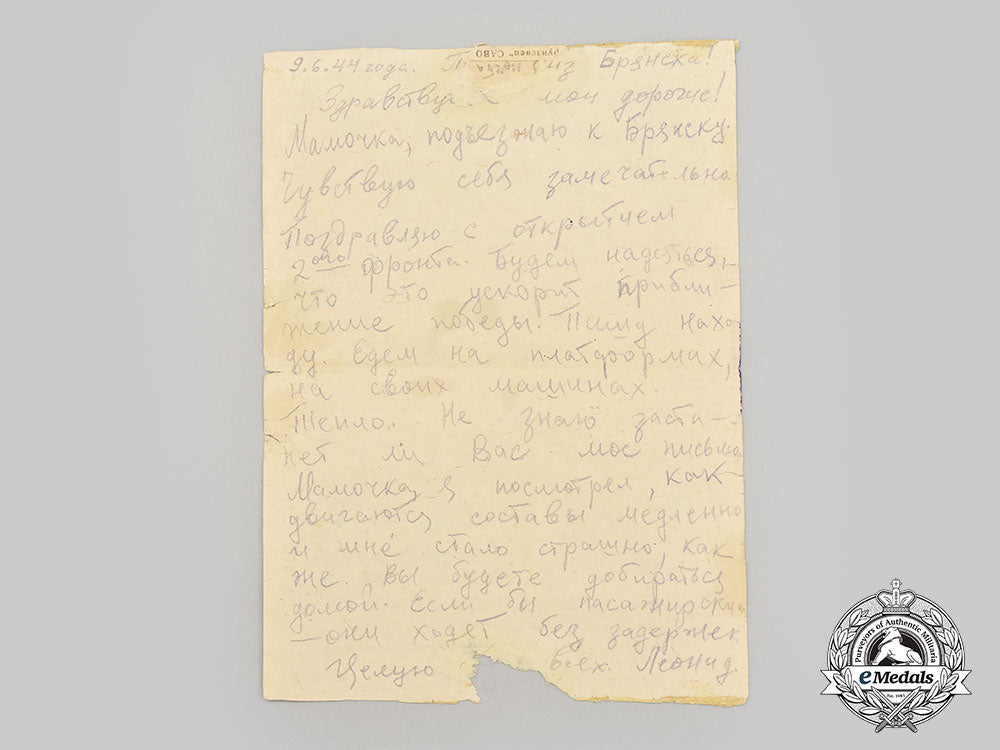 рунзевец" САВО
9.6.44 года. из Брянска!
Здравствуй мои дорогие!
Мамочка, подъезжаю к Брянску.
Чувствую себя замечательно
Поздравляю с открытием
2ого фронта. Будем надеяться,
что это ускорит прибли-
жение победы. Пишу нахо-
ду. Едем на платформах,
на своих машинах.
Тепло. Не знаю заста-
нет ли Вас мое письмо
Мамочка я посмотрел, как
двигаются составы медленно
и мне стало страшно, как
же вы будете добираться
домой. Если бы пасажирским
— они ходят без задержек
Целую всех. Леонид
Purveyors of Authentic Militaria
eMedals